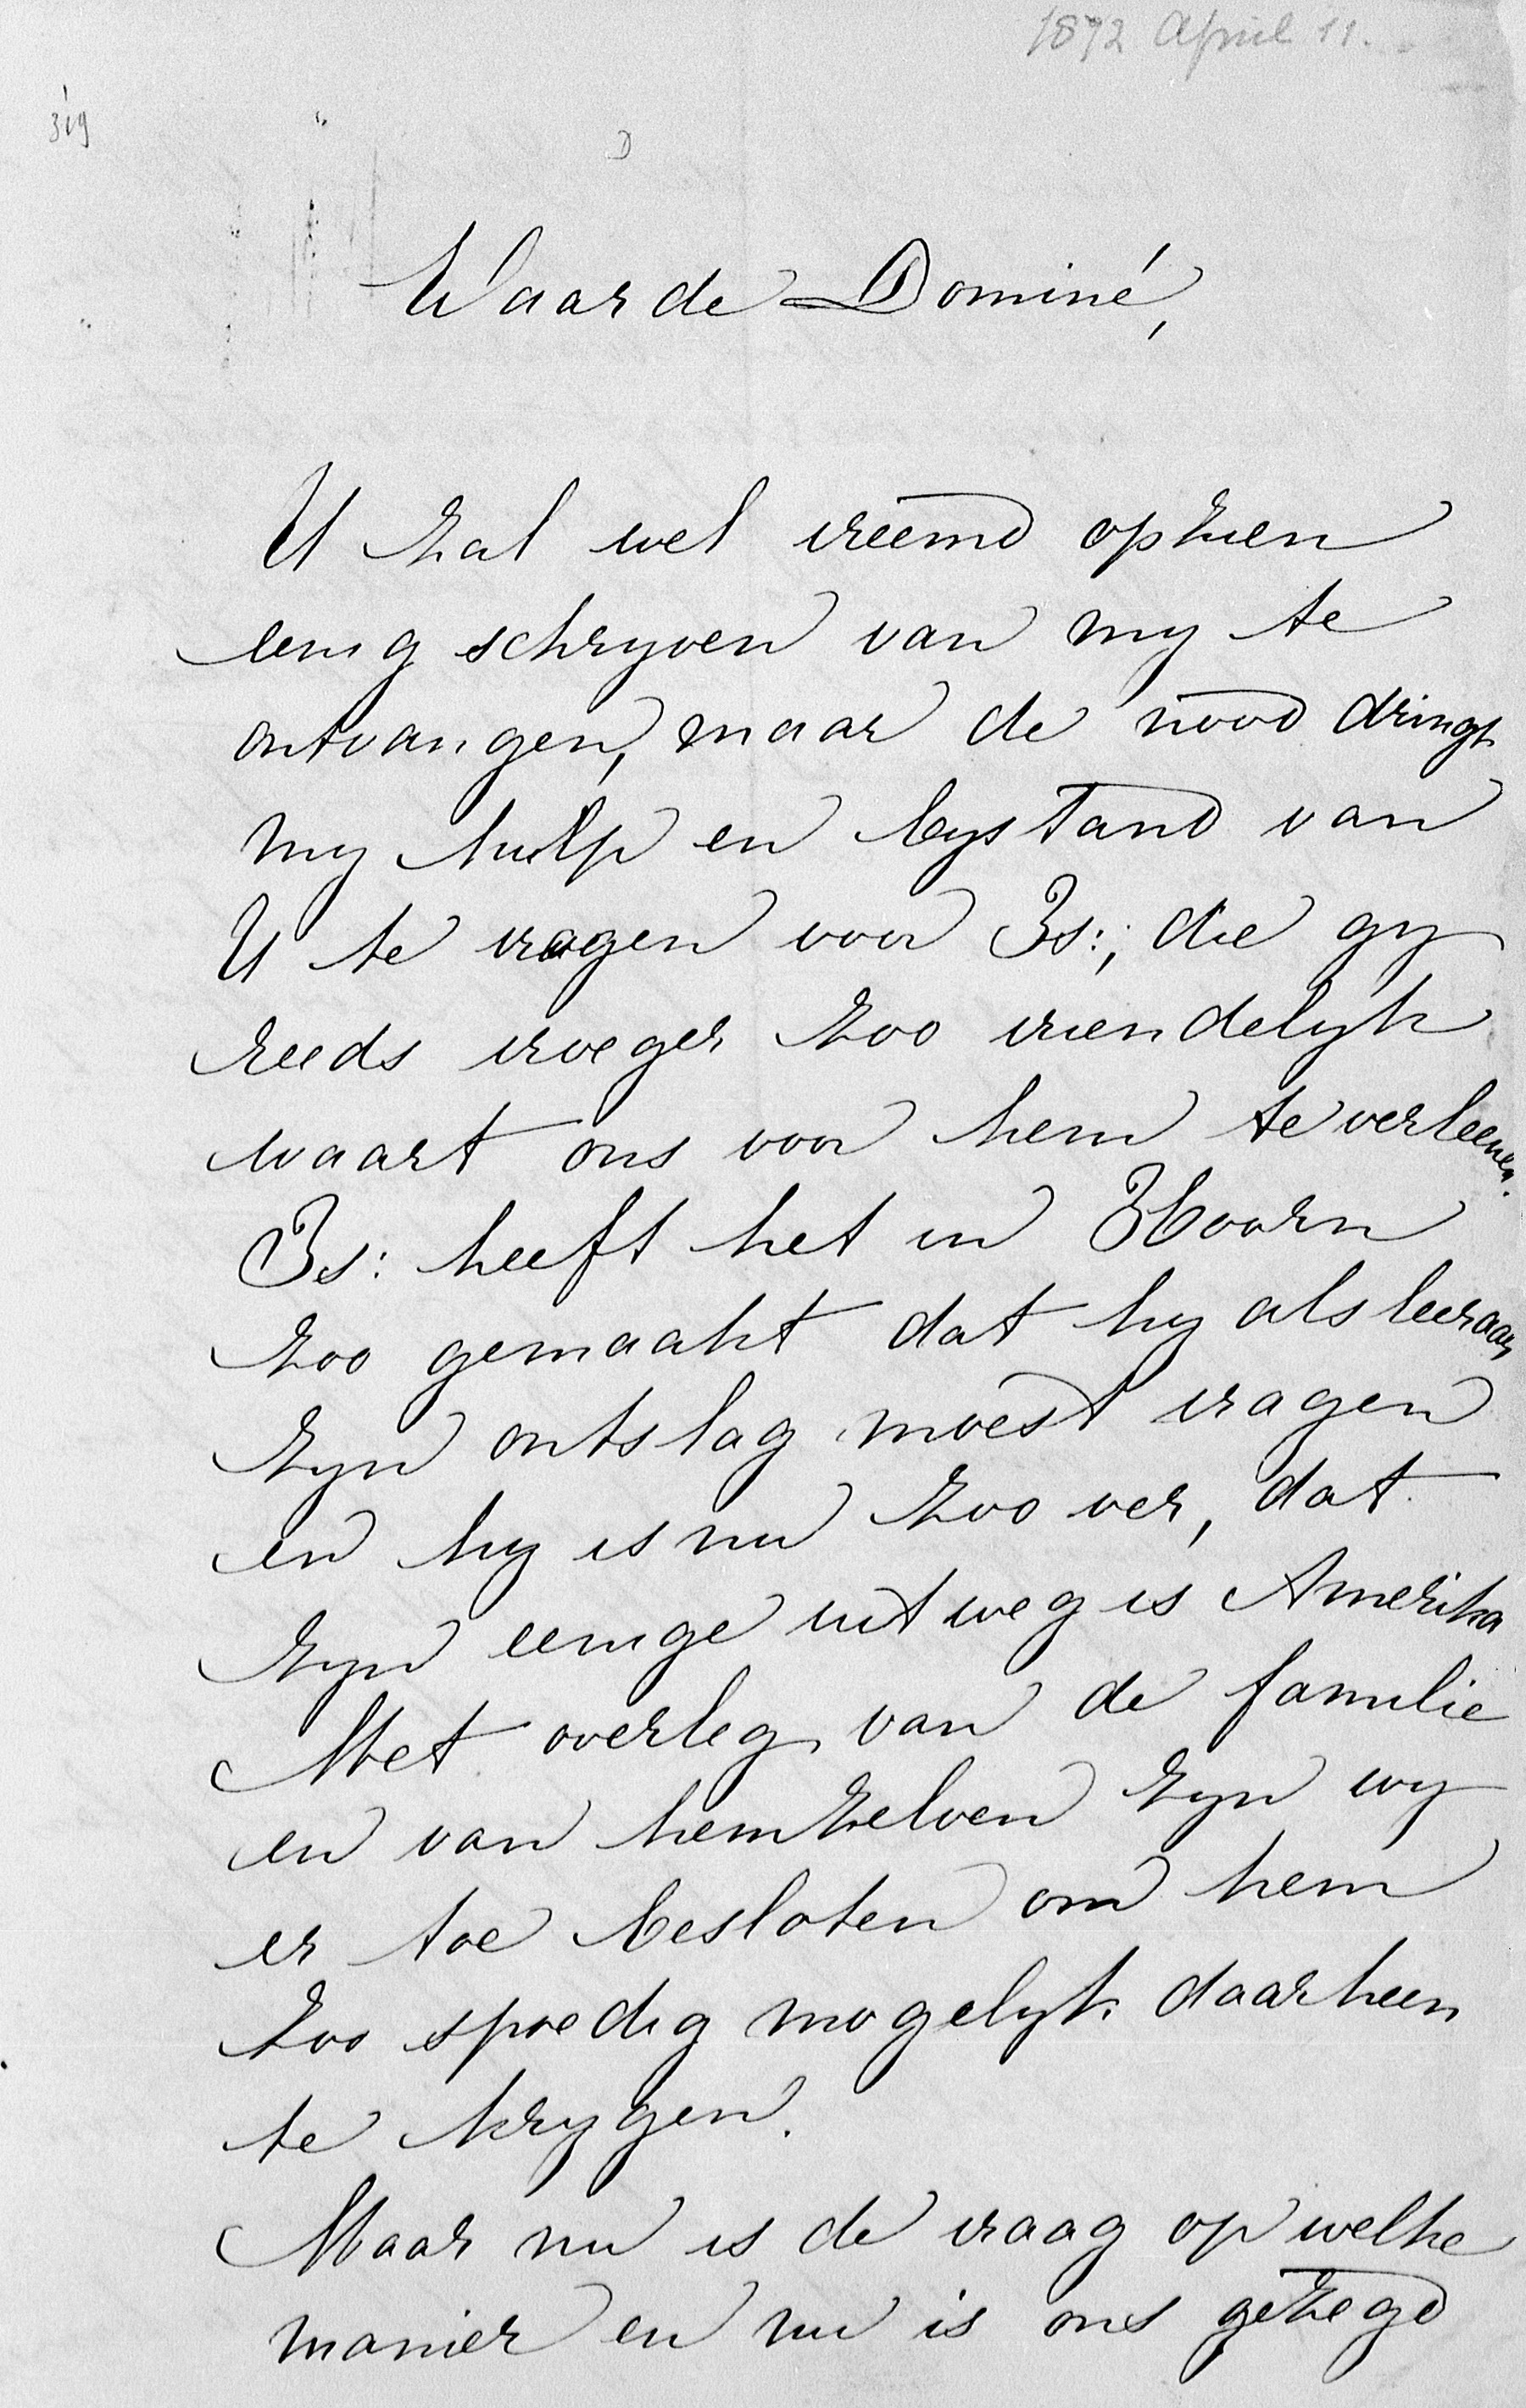 1892 April 11.
Waarde Dominé,
U zal wel vreemd opzien
eenig schryven van my te
ontvangen, maar de nood dringt
my hulp en bystand van
U te vragen voor Is:, die gy
reeds vroeger zoo vriendelyk
waart ons voor hem te verleenen.
Is: heeft het in Hoorn
zoo gemaakt dat hy als leeraar
zyn ontslag moest vragen
en hy is nu zoo ver, dat
zyn eenige uitweg is Amerika
Met overleg van de familie
en van hemzelven zyn wy
er toe besloten om hem
zoo spoedig mogelyk daarheen
te krygen.
Maar nu is de vraag op welke
manier en nu is ons gezegd